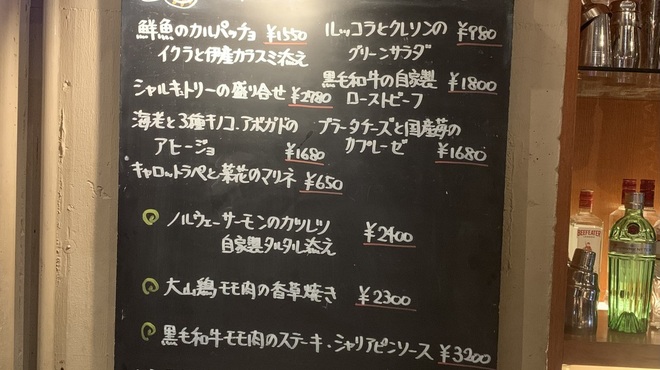 鮮魚のカルパッチョ ¥1550
イクラと伊産カラスミ添え
ルッコラとクレソンの ¥980
グリーンサラダ
シャルキュトリーの盛り合せ ¥2780
黒毛和牛の自家製 ¥1800
ローストビーフ
海老と3種キノコ、アボガドの
アヒージョ ¥1680
ブラータチーズと国産苺の
カプレーゼ ¥1680
キャロットラペと菜花のマリネ ¥650
ノルウェーサーモンのカツレツ ¥2400
自家製タルタル添え
大山鶏モモ肉の香草焼き ¥2300
黒毛和牛モモ肉のステーキ・シャリアピンソース ¥3200
BEEFEATER